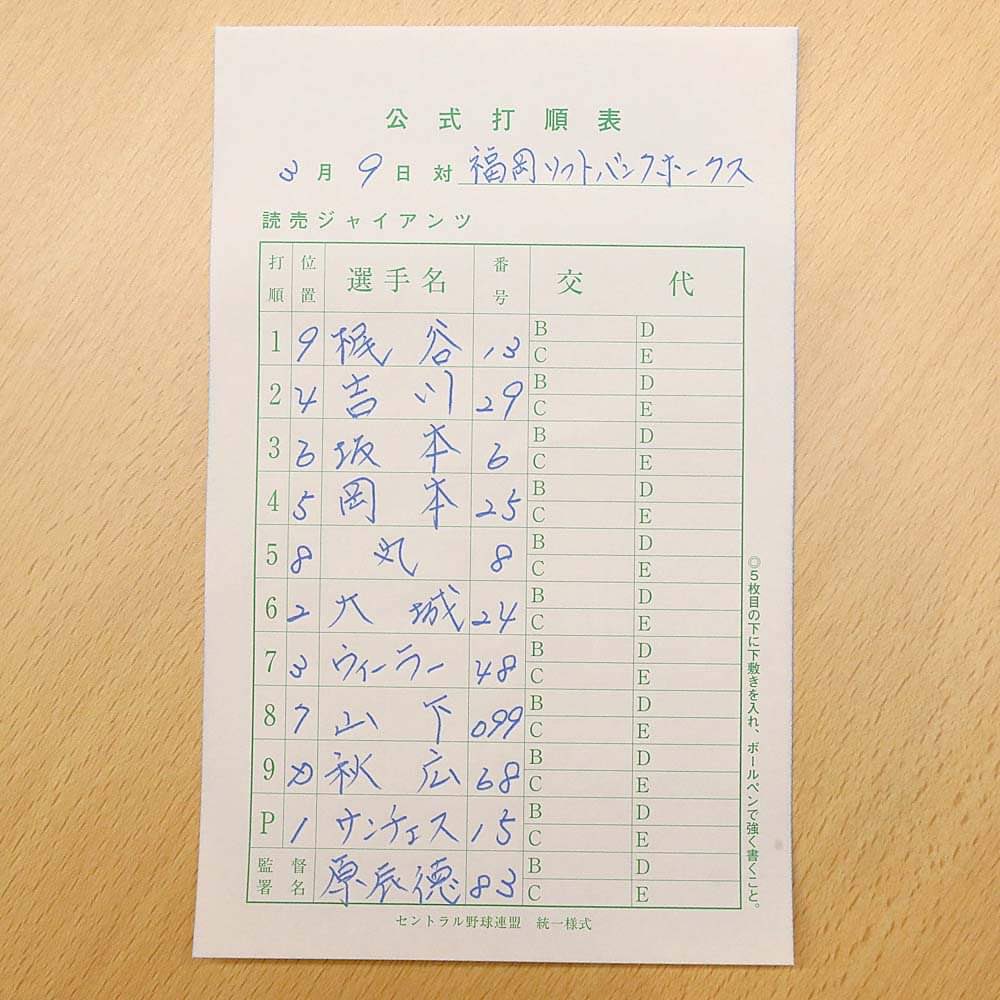 公式打順表
3月9日対 福岡ソフトバンクホークス
読売ジャイアンツ
打順 位置 選手名 番号 交代
1 9 梶谷 13 B D C E
2 4 吉川 29 B D C E
3 6 坂本 6 B D C E
4 5 岡本 25 B D C E
5 8 丸 8 B D C E
6 2 大城 24 B D C E
7 3 ウィーラー 48 B D C E
8 7 山下 099 B D C E
9 D 秋広 68 B D C E
P 1 サンチェス 15 B D C E
監督署名 原辰徳 83 B D C E
セントラル野球連盟 統一様式
◎5枚目の下に下敷きを入れ、ボールペンで強く書くこと。